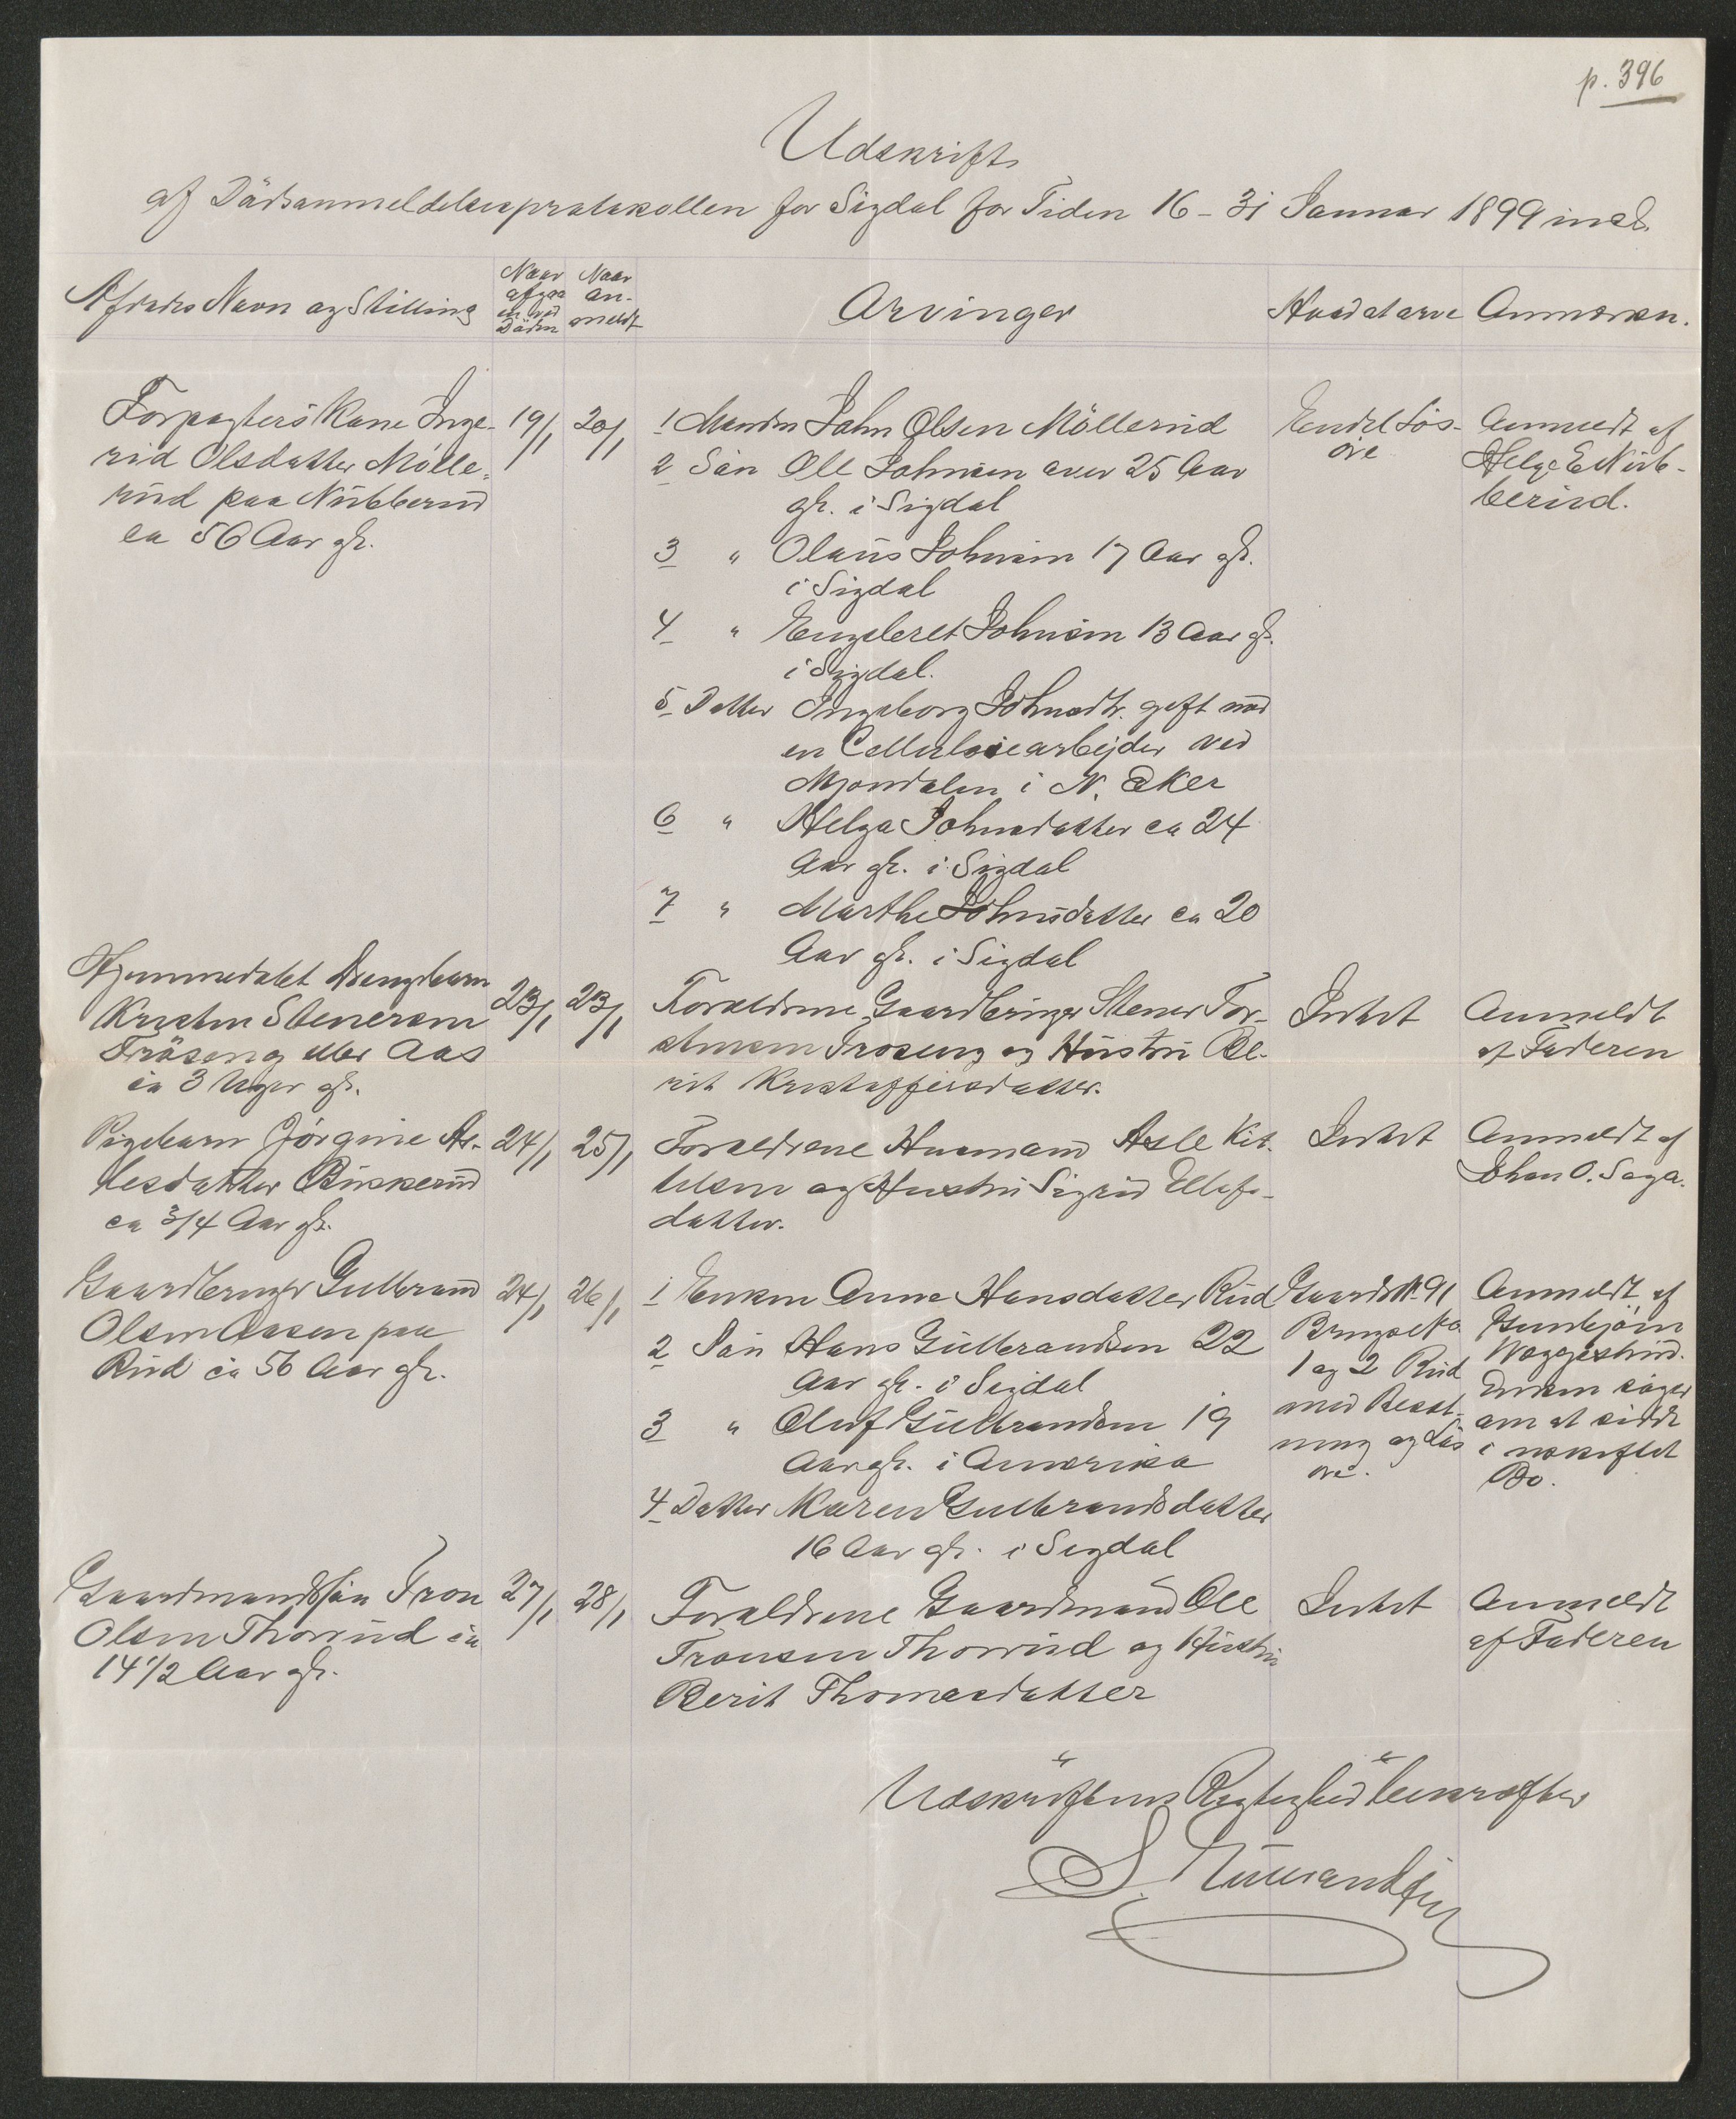 p. 396
Udskrift
af Dödsanmeldelsesprotokollen for Sigdal for Tiden 16 - 31 Januar 1899 incl.
Afdødes Navn og Stilling
Naar afgaaen ved Döden
Naar anmeldt
Arvinger
Hvad at arve
Anmærkn.
Forpagterskone Inge-
rid Olsdatter Mölle-
rud paa Nubberud
ca 56 Aar gl.
19/1
20/1
1 Manden John Olsen Möllerud
2 Sön Ole Johnsen over 25 Aar
gl. i Sigdal
3 " Olaus Johnsen 17 Aar gl.
i Sigdal
4 " Engebret Johnsen 13 Aar gl.
i Sigdal.
5 Datter Ingeborg Johnsdtr. gift med
en Cellulosearbejder ved
Mjøndalen i N. Eker
6 " Helga Johnsdatter ca 24
Aar gl. i Sigdal
7 " Marthe Johnsdatter ca 20
Aar gl. i Sigdal
Endel Lös-
öre
Anmeldt af
Helge E Nub-
berud.
Hjemmedøbt Drengebarn
Kristen Stenersen
Fröseng eller Aas
ca 3 Uger gl.
23/1
23/1
Forældrene Gaardbruger Stener Tor-
stensen Froseng og Hustru Be-
rit Kristoffersdatter.
Intet
Anmeldt
af Faderen
Pigebarn Jörgine As-
lesdatter Buskerud
ca 3/4 Aar gl.
24/1
25/1
Forældrene Husmand Asle Kit-
telsen og Hustru Sigrid Ellefs-
datter.
Intet
Anmeldt af
Johan O. Saga.
Gaardbruger Gulbrand
Olsen Aasen paa
Rud ca 56 Aar gl.
24/1
26/1
1 Enken Anne Hansdatter Rud
2 Sön Hans Gulbrandsen 22
Aar gl. i Sigdal
3 " Oluf Gulbrandsen 19
Aar gl. i Amerika
4 Datter Karen Gulbrandsdatter
16 Aar gl. i Sigdal
Gaards No 91
Brugs No
1 og 2 Rud
med Besæt-
ning og Lös
öre.
Anmeldt af
Gunbjörn
Enken söger
om at sidde
i uskiftet
Bo.
Gaardmandssön Tron
Olsen Thorrud ca
14 1/2 Aar gl.
27/1
28/1
Forældrene Gaardmand Ole
Tronsen Thorrud og Hustru
Berit Thomasdatter
Intet
Anmeldt
af Faderen
Udskriftens Rigtighed bekræftes